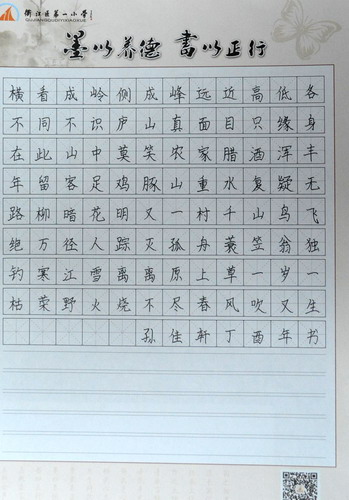 衢江区第一小学
QUJIANGQUDIYIXIAOXUE
墨以养德 书以正行
横看成岭侧成峰远近高低各
不同不识庐山真面目只缘身
在此山中莫笑农家腊酒浑丰
年留客足鸡豚山重水复疑无
路柳暗花明又一村千山鸟飞
绝万径人踪灭孤舟蓑笠翁独
钓寒江雪离离原上草一岁一
枯荣野火烧不尽春风吹又生
孙佳轩丁酉年书